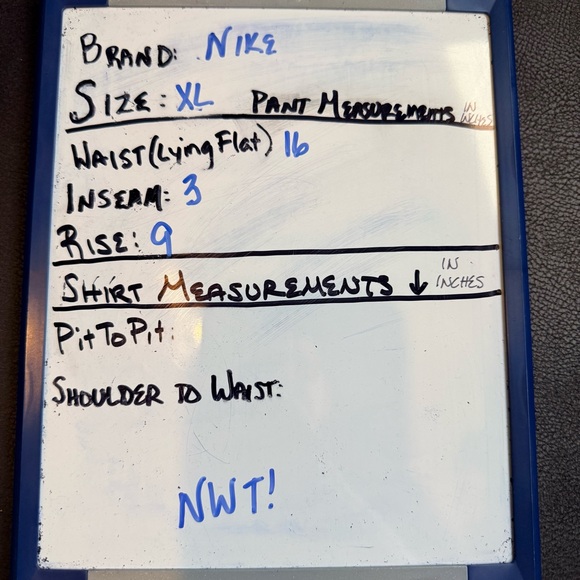 BRAND: NIKE
SIZE: XL PANT MEASUREMENTS IN INCHES
WAIST (Lying Flat) 16
INSEAM: 3
RISE: 9
SHIRT MEASUREMENTS ↓ IN INCHES
Pit To Pit:
SHOULDER TO WAIST:
NWT!